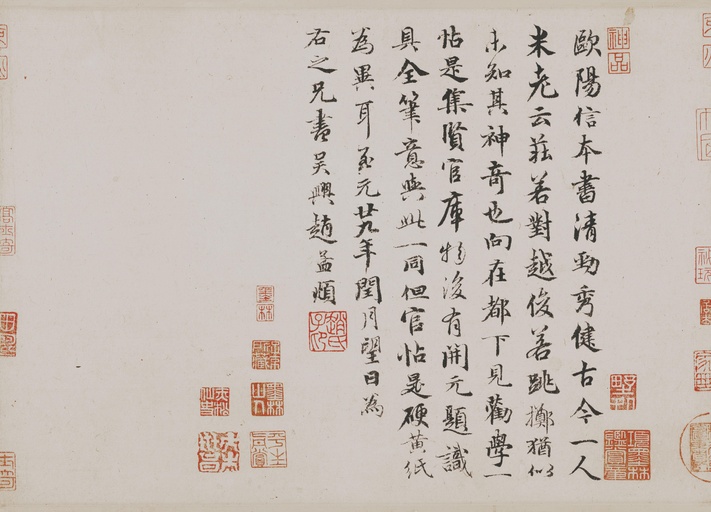 歐陽信本書清勁秀健古今一人
米老云莊若對越俊若跳擲猶似
未知其神奇也向在都下見勸學一
帖是集賢官庫物後有開元題識
具全筆意與此一同但官帖是硬黃紙
為異耳至元廿九年閏月望日為
右之兄書吳興趙孟頫
神品
項墨林鑑賞章
墨林